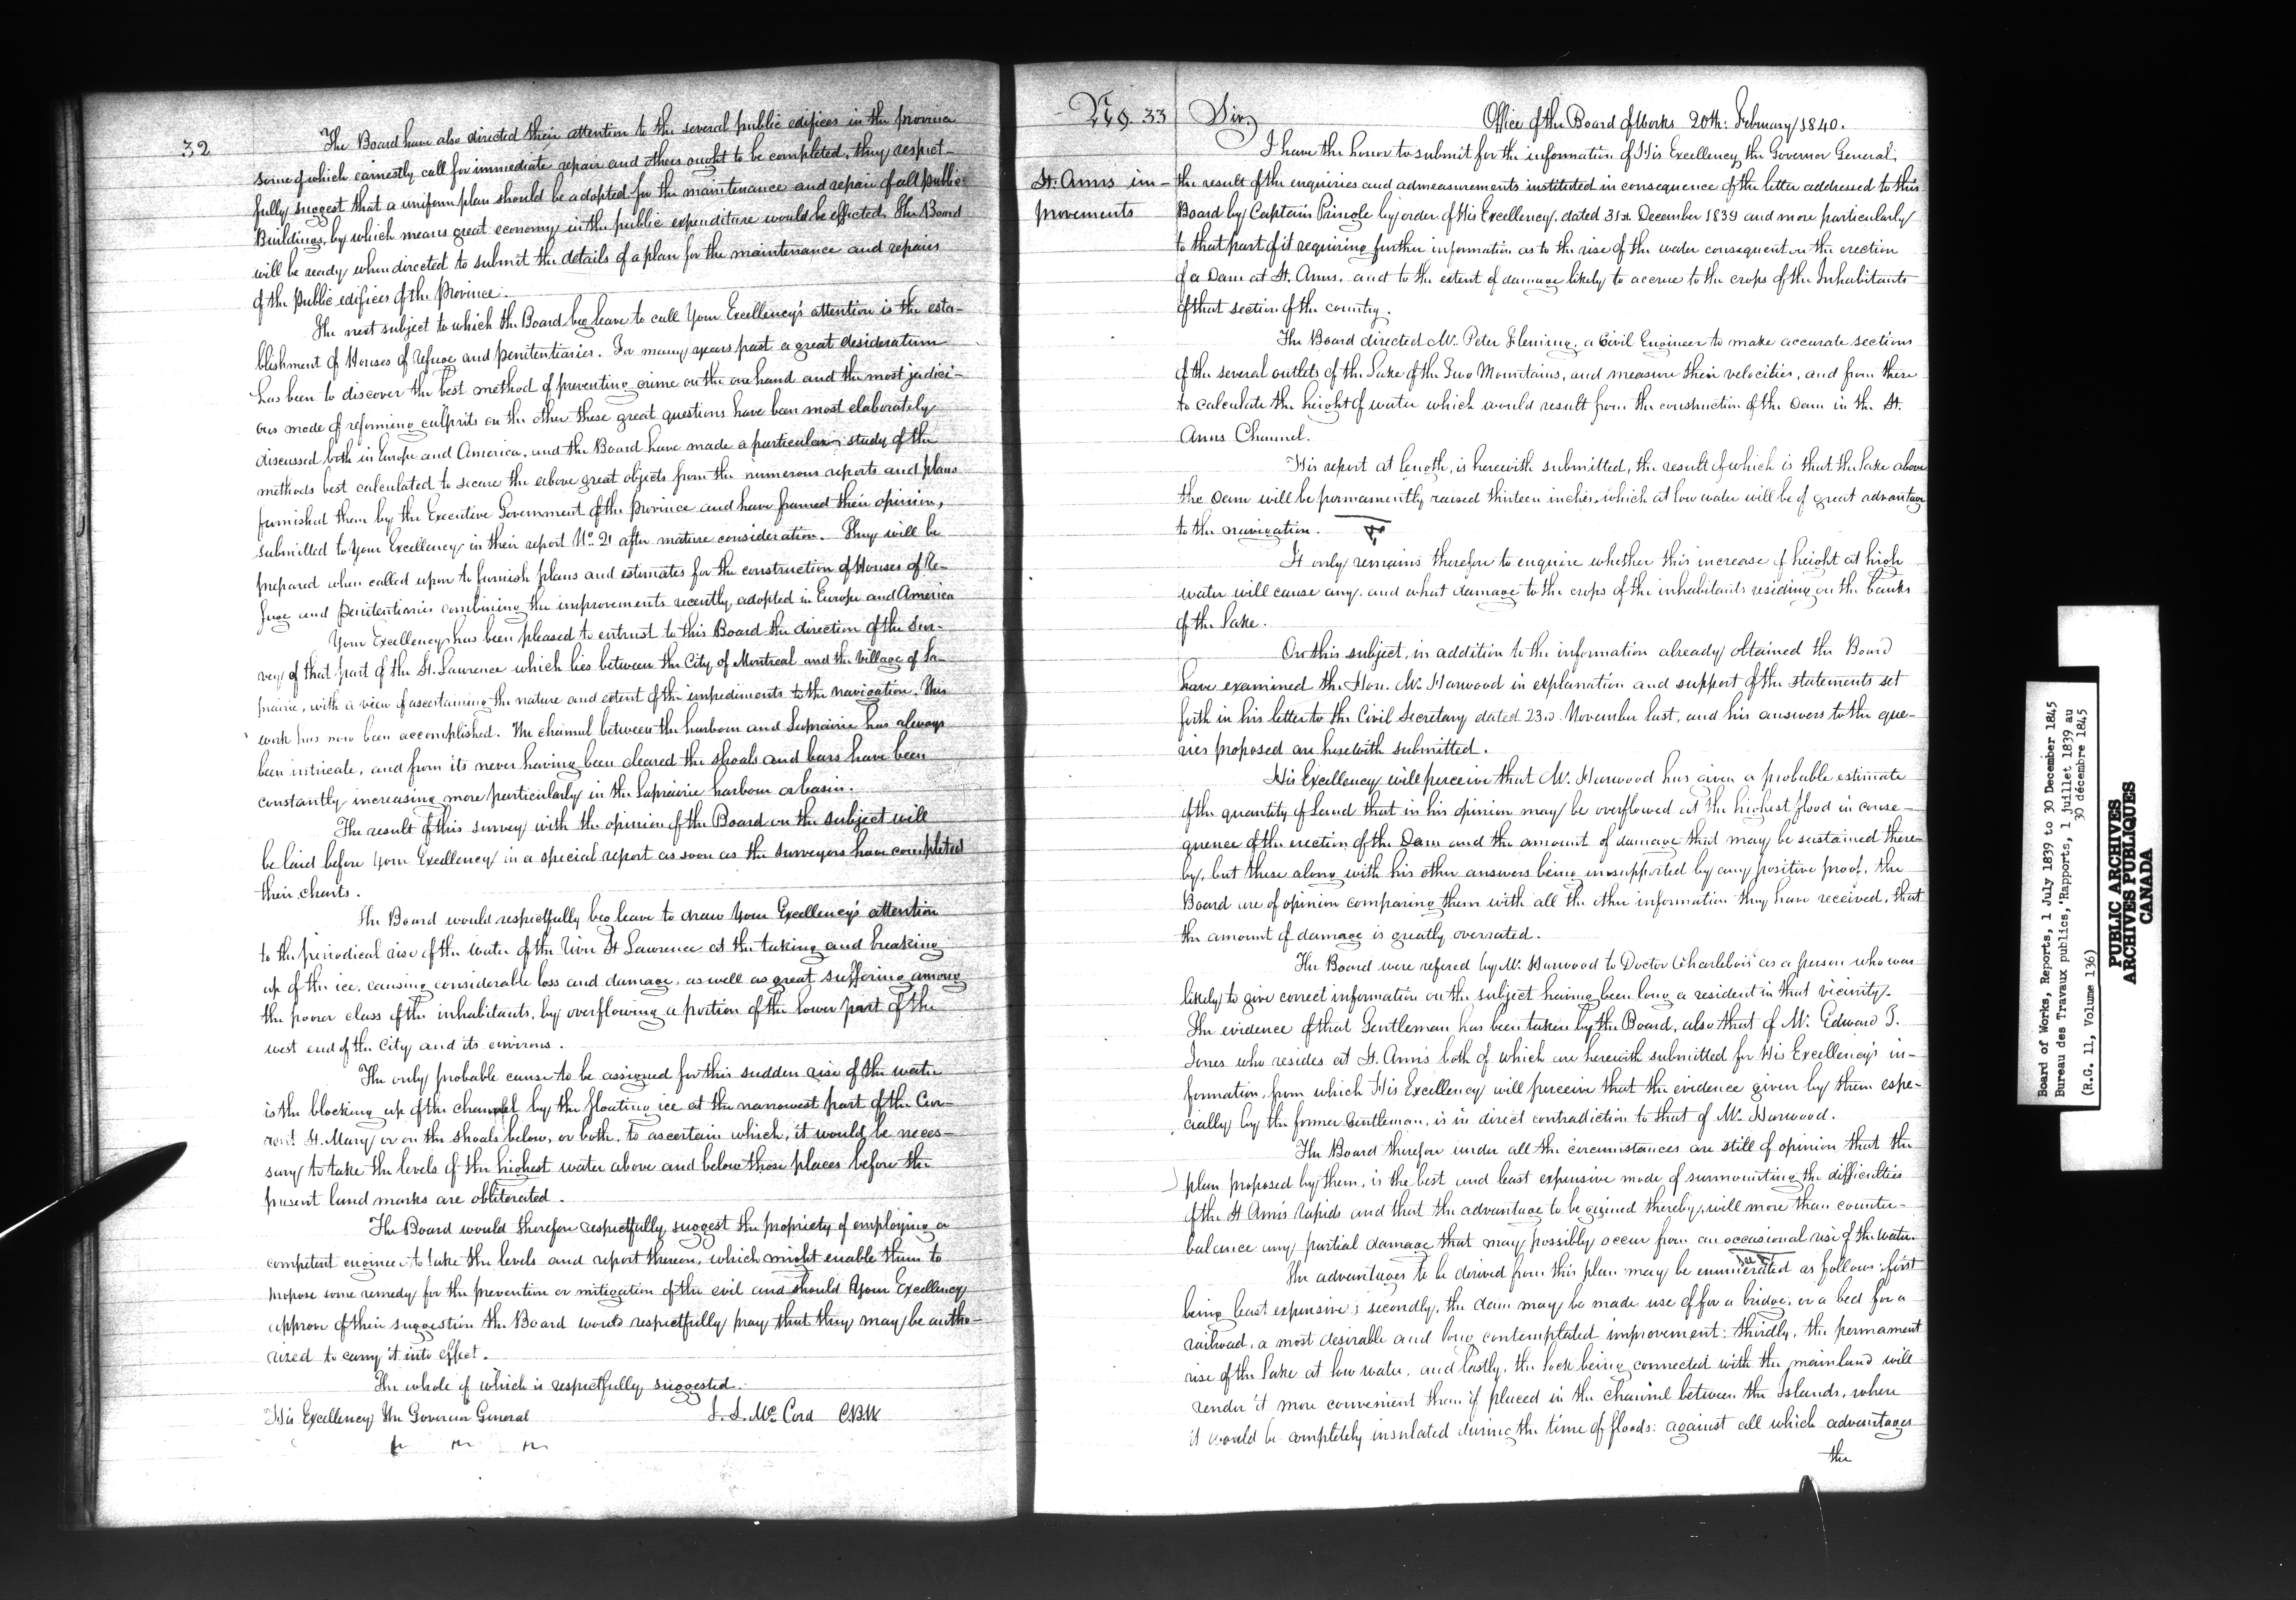 32
The Board have also directed their attention to the several public edifices in the province
some of which earnestly call for immediate repair and others ought to be completed, they respect-
fully suggest that a uniform plan should be adopted for the maintenance and repair of all public
Buildings, by which means great economy in the public expenditure would be effected. The Board
will be ready when directed to submit the details of a plan for the maintenance and repairs
of the public edifices of the Province.
The next subject to which the Board beg leave to call Your Excellency's attention is the esta-
blishment of Houses of refuge and penitentiaries. For many years past a great desideratum
has been to discover the best method of preventing crime on the one hand and the most judici-
ous mode of reforming culprits on the other these great questions have been most elaborately
discussed both in Europe and America, and the Board have made a particular study of the
methods best calculated to secure the above great objects from the numerous reports and plans
furnished them by the Executive Government of the province and have framed their opinion,
submitted to Your Excellency in their report No. 21 after mature consideration. They will be
prepared when called upon to furnish plans and estimates for the construction of Houses of Re-
fuge and Penitentiaries combining the improvements recently adopted in Europe and America
Your Excellency has been pleased to entrust to this Board the direction of the Sur-
vey of that part of the St. Lawrence which lies between the City of Montreal and the Village of La-
prairie, with a view of ascertaining the nature and extent of the impediments to the navigation. This
work has now been accomplished. The channel between the harbour and Laprairie has always
been intricate, and from its never having been cleared the shoals and bars have been
constantly increasing more particularly in the Laprairie harbour or basin.
The result of this survey with the opinion of the Board on the subject will
be laid before Your Excellency in a special report as soon as the surveyors have completed
their charts.
The Board would respectfully beg leave to draw Your Excellency's attention
to the periodical rise of the water of the River St Lawrence at the taking and breaking
up of the ice, causing considerable loss and damage, as well as great suffering among
the poorer class of the inhabitants, by overflowing a portion of the lower part of the
west end of the City and its environs.
The only probable cause to be assigned for this sudden rise of the water
is the blocking up of the channel by the floating ice at the narrowest part of the Cur-
rent St. Mary or on the shoals below, or both, to ascertain which, it would be neces-
sary to take the levels of the highest water above and below those places before the
present land marks are obliterated.
The Board would therefore respectfully suggest the propriety of employing a
competent engineer to take the levels and report thereon, which might enable them to
propose some remedy for the prevention or mitigation of the evil and should Your Excellency
approve of their suggestion the Board would respectfully pray that they may be autho-
rized to carry it into effect.
The whole of which is respectfully suggested.
His Excellency The Governor General
J. S. Mc Cord CBW
No. 33
Sir,
Office of the Board of Works 20th: February 1840.
St. Anns im-
provements
I have the honor to submit for the information of His Excellency the Governor General,
the result of the enquiries and admeasurements instituted in consequence of the letter addressed to this
Board by Captain Pringle by order of His Excellency, dated 31st. December 1839 and more particularly
to that part of it requiring further information as to the rise of the water consequent on the erection
of a Dam at St. Anns, and to the extent of damage likely to accrue to the crops of the Inhabitants
of that section of the country.
The Board directed Mr. Peter Fleming, a Civil Engineer to make accurate sections
of the several outlets of the Lake of the Two Mountains, and measure their velocities, and from these
to calculate the height of water which would result from the construction of the Dam in the St.
Anns Channel.
His report at length, is herewith submitted, the result of which is that the Lake above
the Dam will be permamently raised thirteen inches, which at low water will be of great advantage
to the navigation.
It only remains therefore to enquire whether this increase of height at high
water will cause any, and what damage to the crops of the inhabitants residing on the banks
of the Lake.
On this subject, in addition to the information already obtained the Board
have examined the Hon. Mr. Harwood in explanation and support of the statements set
forth in his letter to the Civil Secretary dated 23rd. November last, and his answers to the que-
ries proposed are herewith submitted.
His Excellency will perceive that Mr. Harwood has given a probable estimate
of the quantity of land that in his opinion may be overflowed at the highest flood in conse-
quence of the erection of the Dam and the amount of damage that may be sustained there-
by, but these along with his other answers being unsupported by any positive proof, the
Board are of opinion comparing them with all the other information they have received, that
the amount of damage is greatly overrated.
The Board were refered by Mr. Harwood to Doctor Charlebois as a person who was
likely to give correct information on the subject having been long a resident in that vicinity.
The evidence of that Gentleman has been taken by the Board, also that of Mr. Edward T.
Jones who resides at St. Anns both of which are herewith submitted for His Excellency's in-
formation, from which His Excellency will perceive that the evidence given by them espe-
cially by the former Gentleman, is in direct contradiction to that of Mr. Harwood.
The Board therefore under all the circumstances are still of opinion that the
plan proposed by them, is the best and least expensive mode of surmounting the difficulties
of the St Ann's Rapids and that the advantage to be gained thereby, will more than counter-
balance any partial damage that may possibly occur from an occasional rise of the water.
The advantages to be derived from this plan may be enumerated as follows: first
being least expensive; secondly, the dam may be made use of for a bridge, or a bed for a
railroad, a most desirable and long contemplated improvement: thirdly, the permament
rise of the Lake at low water, and lastly, the lock being connected with the mainland will
render it more convenient than if placed in the channel between the Islands, where
it would be completely insulated during the time of floods: against all which advantages
the
Board of Works, Reports, 1 July 1839 to 30 December 1845
Bureau des Travaux publics, Rapports, 1 juillet 1839 au
30 décembre 1845
(R.G. 11, Volume 136)
PUBLIC ARCHIVES
ARCHIVES PUBLIQUES
CANADA